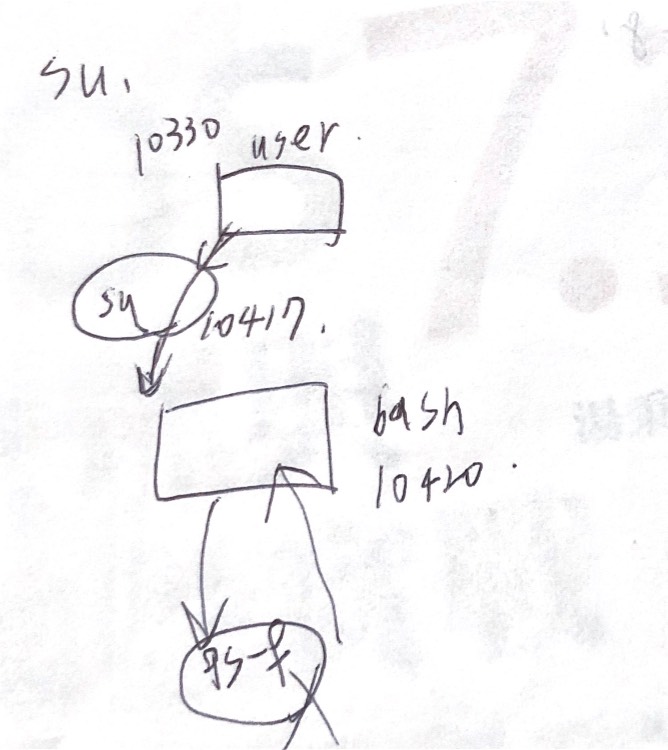 su.
10330 user.
su
10417.
bash
10420.
ps-f